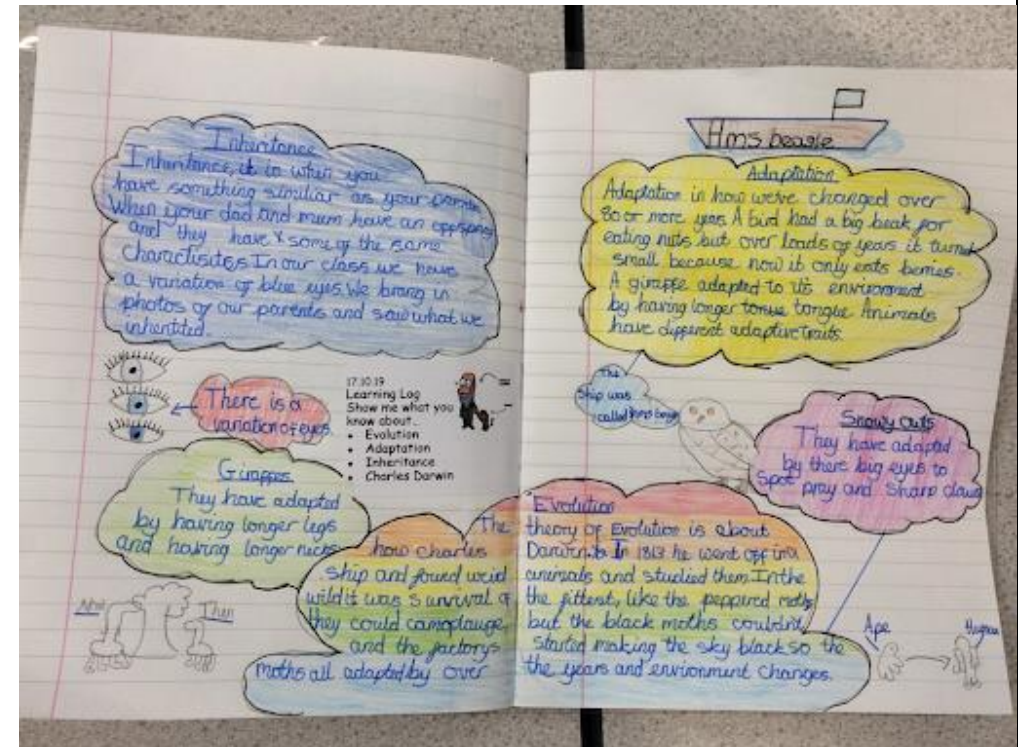 Inheritance
Inheritance, it is when you
have something similiar as your parents
When your dad and mum have an offspring
and they have some of the same
charactisites In our class we have
a variation of blue eyes. We brang in
photos of our parents and saw what we
inhertited.
There is a
variation of eyes
17.10.19
Learning Log
Show me what you
know about..
• Evolution
• Adaptation
• Inheritance
• Charles Darwin
Giraffes
They have adapted
by having longer legs
and having longer necks
Now
Then
Hms beagle
Adaptation
Adaptation in how we've changed over
80 or more yeas A bird had a big beak for
eating nuts but over loads of years it turned
small because now it only eats berries.
A giraffe adapted to it's environment
by having longer tongue Animals
have different adaptive traits.
The
Ship was
called hms beagle
Snowy owls
They have adapted
by there big eyes to
spot pray and sharp claws
Evolution
The theory of Evolution is about
how charles Darwin In 1813 he went off in a
ship and found weird animals and studied them. In the
wild it was survival of the fittest, like the peppered moths
they could camoplauge but the black moths couldnt
and the factorys started making the sky black so the
moths all adapted by over the years and environment changes.
Ape
Human